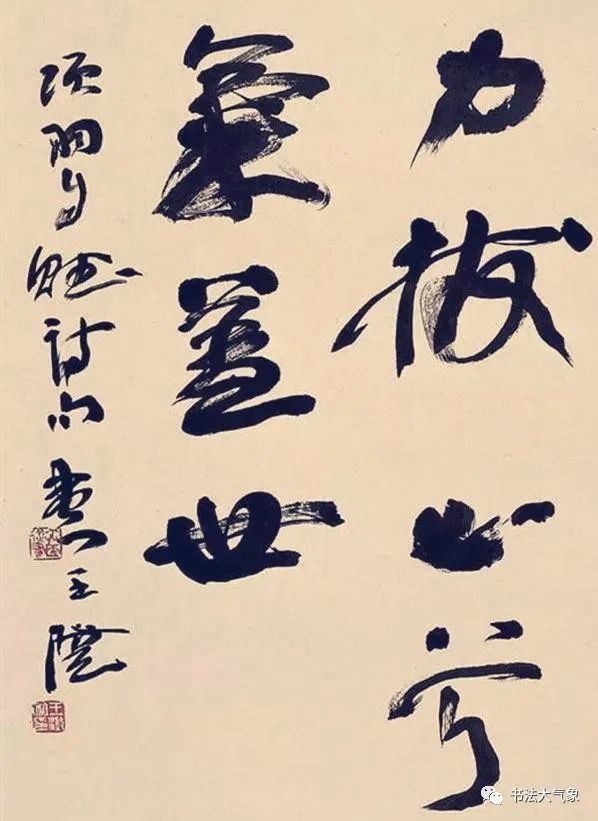 力拔山兮
氣蓋世
項羽自賦詩句 王
书法大气象